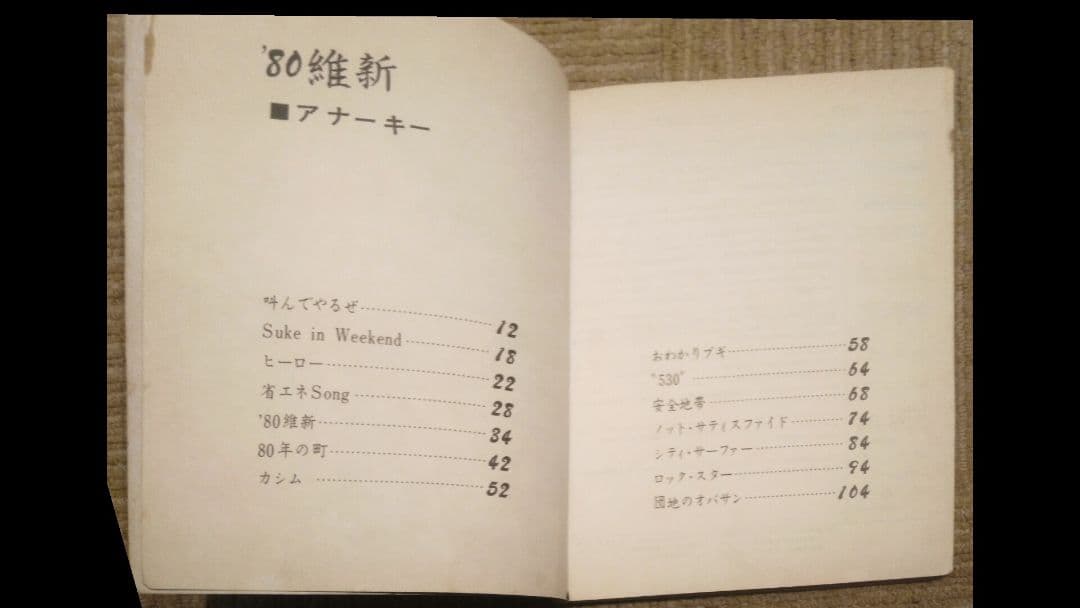 '80維新
■アナーキー
叫んでやるぜ 12
Suke in Weekend 18
ヒーロー 22
省エネSong 28
'80維新 34
80年の町 42
カシム 52
おわかりブギ 58
"530" 64
安全地帯 68
ノット・サティスファイド 74
シティ・サーファー 84
ロック・スター 94
団地のオバサン 104